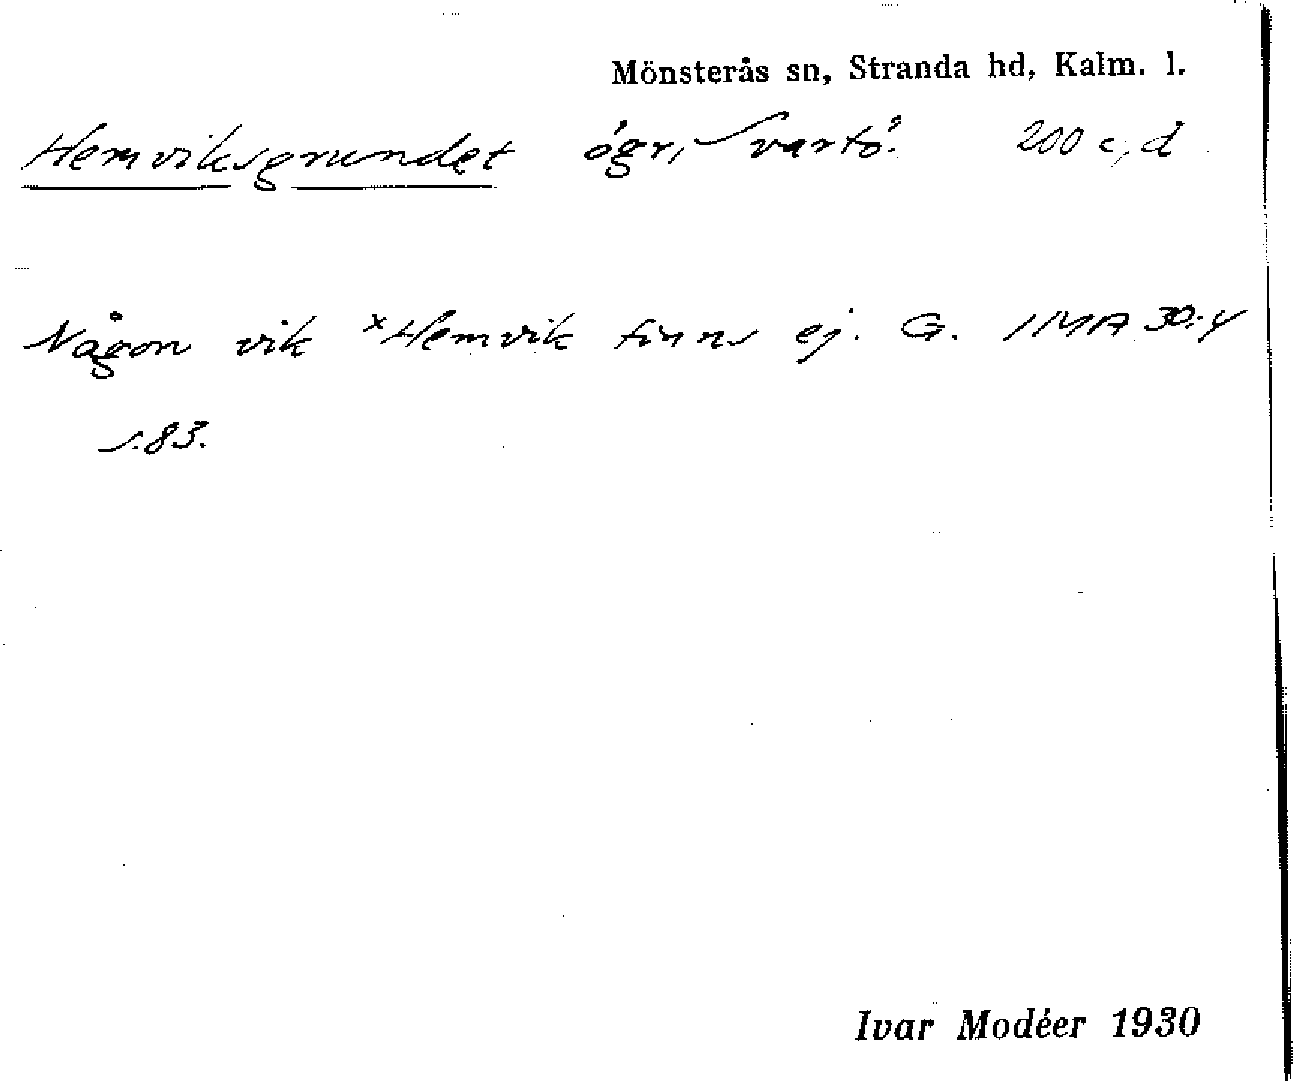 Mönsterås sn, Stranda hd, Kalm. l.
Hemviksgrundet ögr, Svartö. 200 c, d
Någon vik ˣHemvik finns ej. G. IMA 30:4
s. 83.
Ivar Modéer 1930